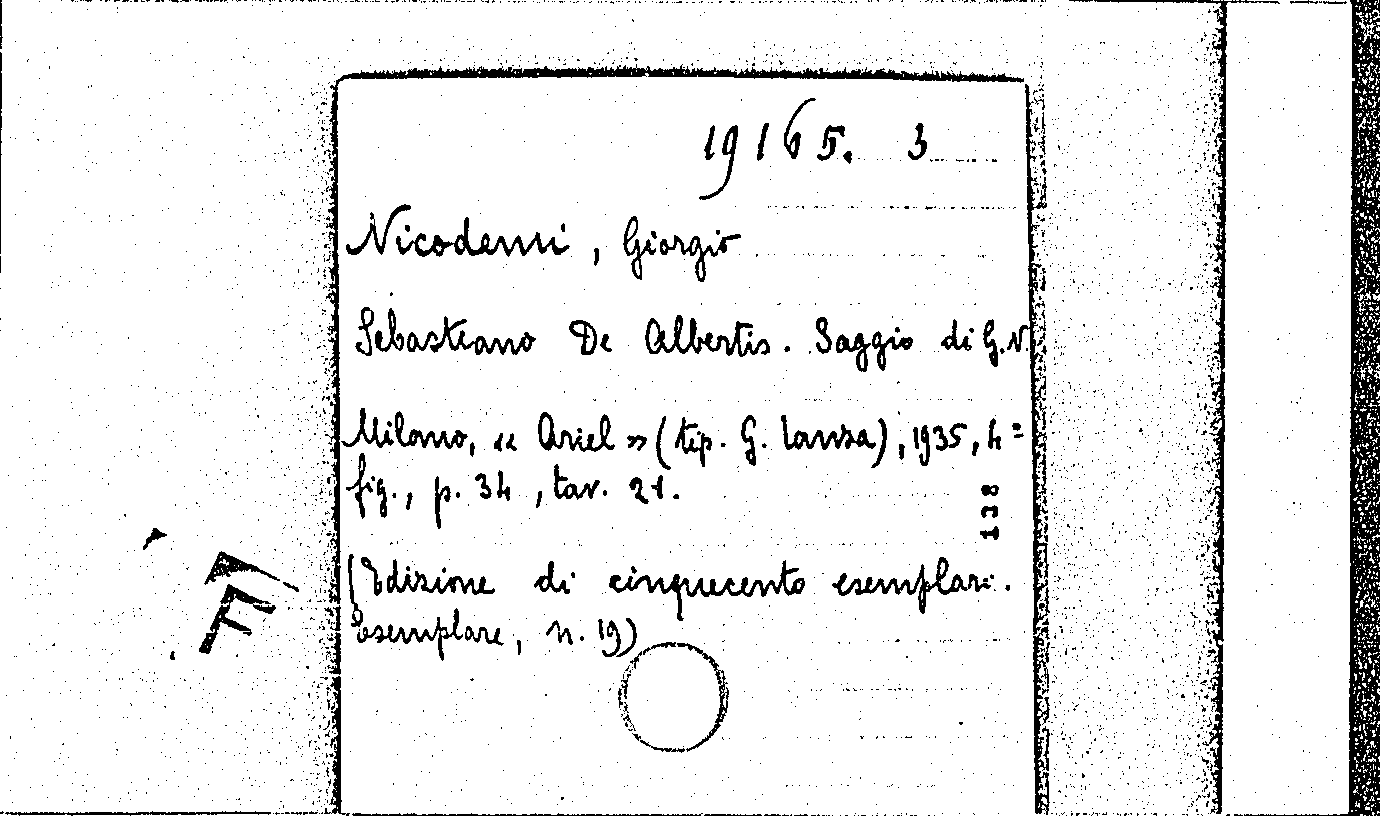 19165. 3
Nicodemi, Giorgio
Sebastiano De Albertis. Saggio di G.N.
Milano, « Ariel » (tip. G. Lanza), 1935, 4º
fig., p. 34, tav. 21.
138
(Edizione di cinquecento esemplari.
Esemplare, n. 19)
F